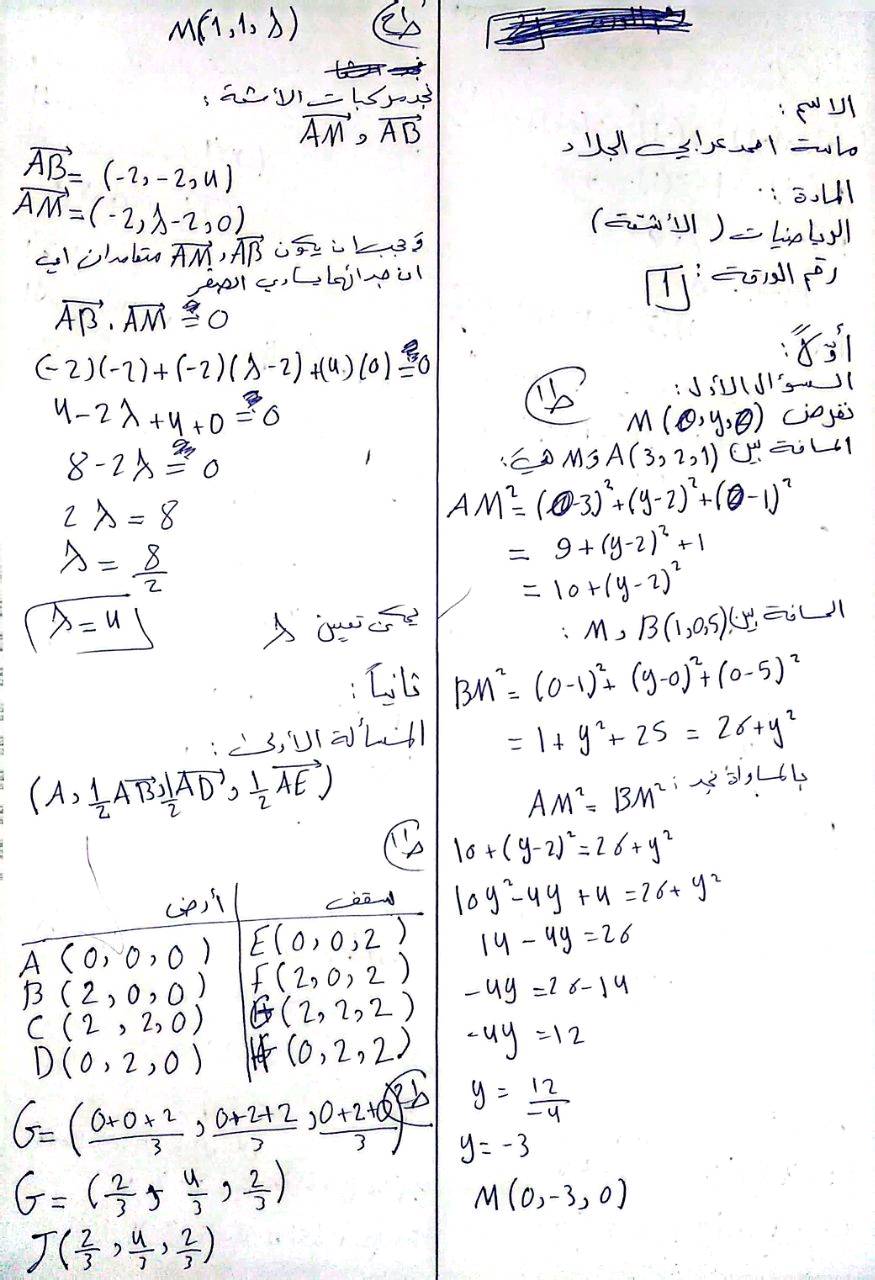 الاسم :
ماسة احمد عرابي الجلاد
المادة :
الرياضيات ( الأشعة )
رقم الورقة : 1
أولاً :
السؤال الأول :
ط1
نفرض M(0,y,0)
المسافة بين A(3,2,1) و M هي :
AM² = (0-3)² + (y-2)² + (0-1)²
= 9 + (y-2)² + 1
= 10 + (y-2)²
المسافة بين B(1,0,5) و M :
BM² = (0-1)² + (y-0)² + (0-5)²
= 1 + y² + 25 = 26 + y²
بالمساواة نجد :
AM² = BM²
10 + (y-2)² = 26 + y²
10y² - 4y + 4 = 26 + y²
14 - 4y = 26
-4y = 26 - 14
-4y = 12
y = 12/-4
y = -3
M(0,-3,0)
M(1,1,λ) ط2
نجد مركبات الأشعة :
AM⃗ , AB⃗
AB⃗ = (-2,-2,4)
AM⃗ = (-2,λ-2,0)
وجب ان يكون AB⃗ , AM⃗ متعامدان اي
ان جدائهما يساوي الصفر
AB⃗ . AM⃗ = 0
(-2)(-2) + (-2)(λ-2) + (4)(0) = 0
4 - 2λ + 4 + 0 = 0
8 - 2λ = 0
2λ = 8
λ = 8/2
λ = 4 يمكن تعيين λ
ثانياً :
المسألة الأولى :
(A, 1/2 AB⃗, 1/2 AD⃗, 1/2 AE⃗)
ط1
أرض | سقف
A (0,0,0) | E(0,0,2)
B (2,0,0) | F(2,0,2)
C (2,2,0) | G(2,2,2)
D(0,2,0) | H(0,2,2)
ط2
G = ( 0+0+2/3 , 0+2+2/3 , 0+2+0/3 )
G = ( 2/3 , 4/3 , 2/3 )
J( 2/3 , 4/3 , 2/3 )